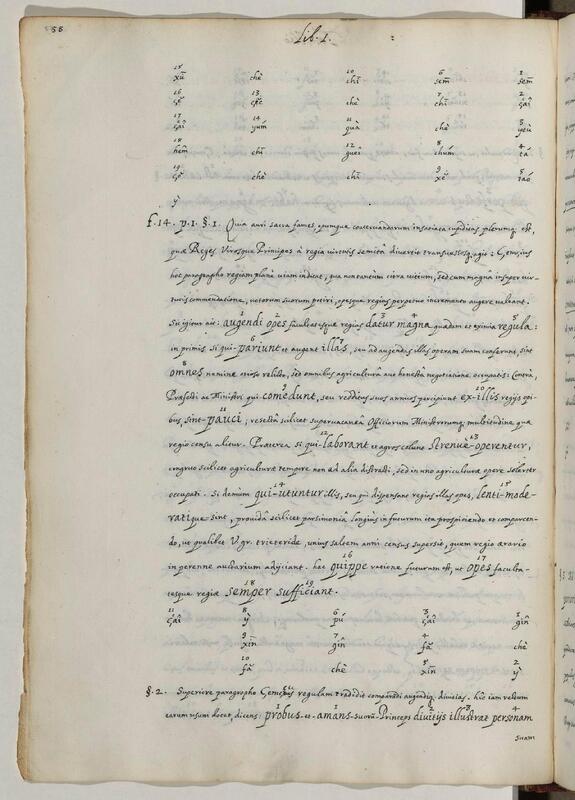 58
Lib. I.
15 10 6 1
xú chè chī sem̂ sem̂
16 13 7 2
çě çĕ chè chī çâi
17 14 11 3
çâi yúm guâ chè yeù
18 12 8 4
hem̂ chī guêi chúm tá
19 9 5
çě chè chī xě táo
y
f. 14. p. 1. §. 1. Quia auri sacra fames, opumque conservandarum insatiata cupiditas plerumque est,
quae Reges Virosque Principes à regia virtutis semitâ diversos transversosque agit:
hoc paragrapho regiam planè viam indicat, qua non tantùm citra vitium, sed cum magna insuper vir-
tutis commendatione, votorum suorum potiri, opesque regias perpetuo incremento augere valeant.
Sic igitur ait: augendi opes facultatesque regias datur magna quaedam et eximia regula:
in primis si qui-pariunt et augent illas, seu ad augendas illas operam suam conferunt, sint
omnes nemine otioso relicto, sed omnibus agriculturae aut honestae negotiatione occupatis: Contrà,
Praefecti ac Ministri qui comedunt, seu redditus suos annuos percipiunt ex-illis regijs opi-
bus, sint-pauci; resectâ scilicet supervacaneâ Officiorum Ministrorumque multitudine quae
regio censu alitur. Praeterea si qui-laborant et agros colunt strenuè-operentur,
congruo scilicet agriculturae tempore non ad alia distracti, sed in uno agriculturae opere solerter
occupati. Si demùm qui-utuntur illis, seu qui dispensant regias illas opes, lentè-mode-
ratique sint, providâ scilicet parsimoniâ longiùs in futurum ita prospiciendo et comparcen-
do, ut qualibet V. gr. trieteride, unius saltem anni census supersit, quem regio aerario
in perenne auctarium adijciant. hac quippe ratione futurum est, ut opes faculta-
tesque regiae semper sufficiant.
11 8 6 3 1
çâi y̌ pú çâi gin̂
9 7 4
xin̄ gin̂ fǎ chè
10 5 2
fǎ chè xin̄ y̌
§. 2. Superiore paragrapho regulam tradidit comparandi augendique divitias. hic iam rectum
earum usum docet, dicens: probus-et-amans-suorū Princeps divitijs illustrat personam
suam